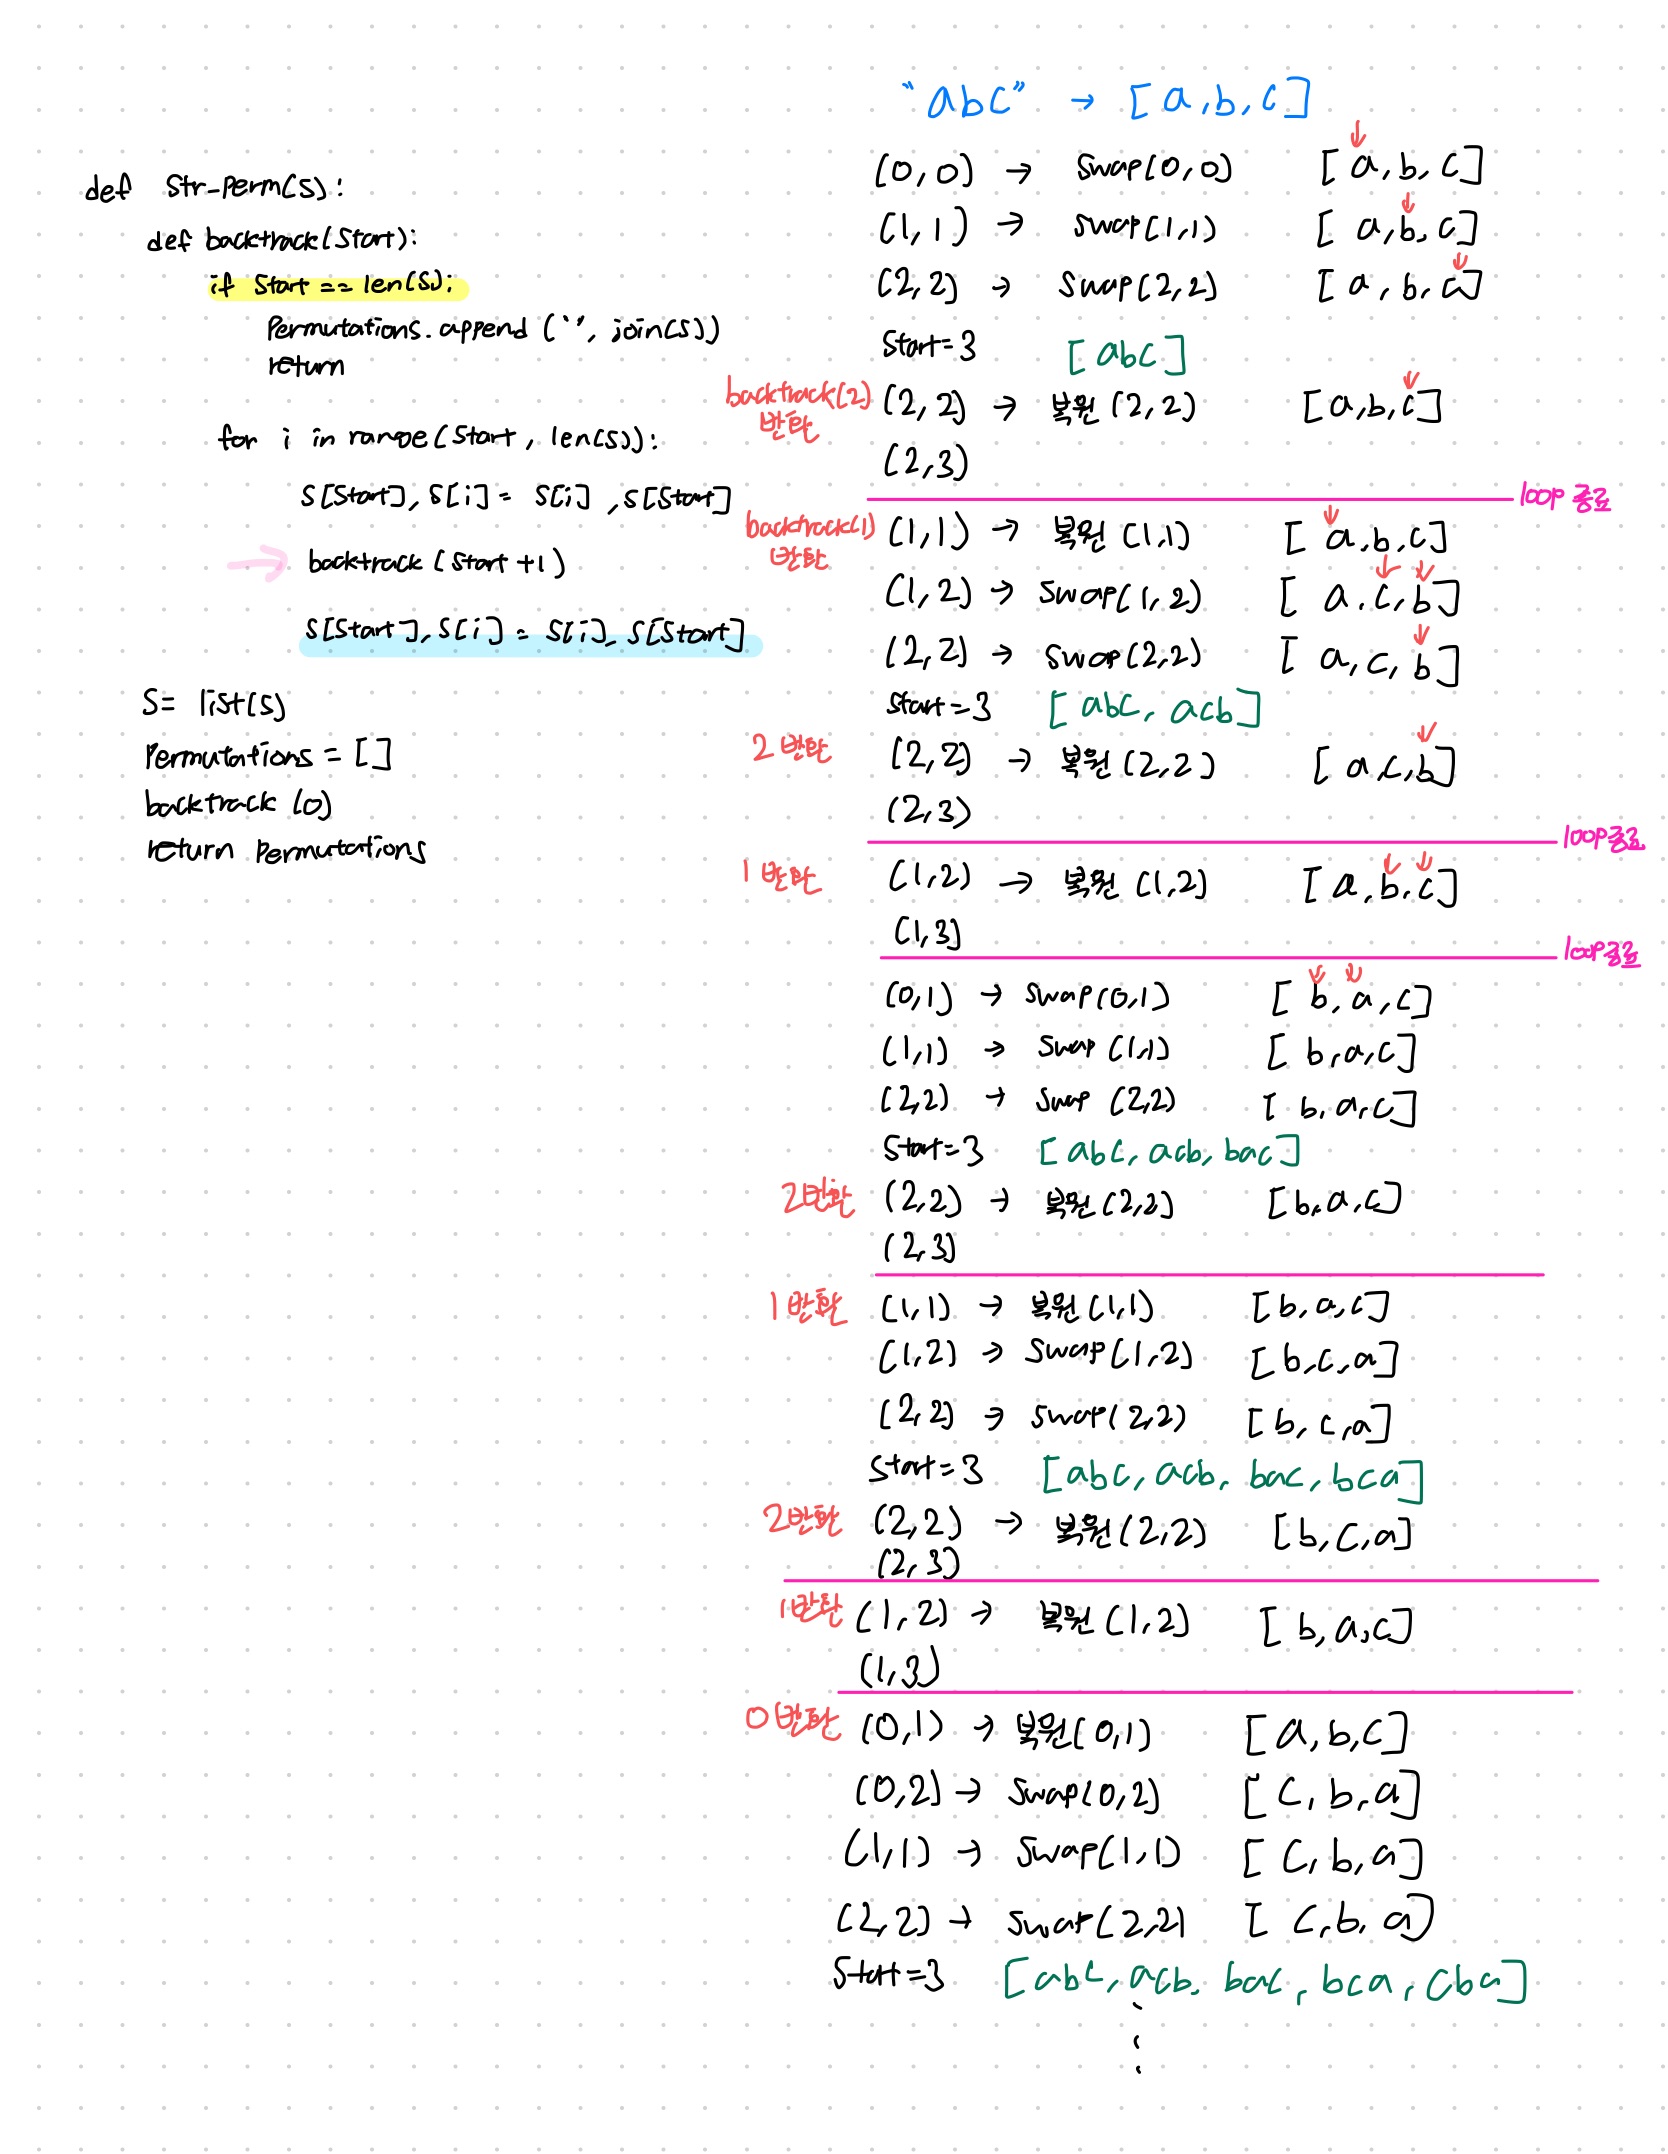 def str-perm(s):
def backtrack(start):
if start == len(s):
Permutations.append (`', join(s))
return
for i in range(start, len(s)):
s[start], s[i] = s[i], s[start]
→ backtrack (start +1)
s[start], s[i] = s[i], s[start]
S= list(s)
Permutations = []
backtrack (0)
return permutations
"abc" → [a,b,c]
(0,0) → swap(0,0) [a,b,c]
(1,1) → swap(1,1) [a,b,c]
(2,2) → swap(2,2) [a,b,c]
start=3 [abc]
backtrack(2) 반환 (2,2) → 복원 (2,2) [a,b,c]
(2,3)
loop 종료
backtrack(1) 반환 (1,1) → 복원 (1,1) [a,b,c]
(1,2) → swap(1,2) [a,c,b]
(2,2) → swap(2,2) [a,c,b]
start=3 [abc, acb]
2 반환 (2,2) → 복원 (2,2) [a,c,b]
(2,3)
loop종료
1 반환 (1,2) → 복원 (1,2) [a,b,c]
(1,3)
loop종료
(0,1) → swap(0,1) [b,a,c]
(1,1) → swap (1,1) [b,a,c]
(2,2) → swap (2,2) [b,a,c]
start=3 [abc, acb, bac]
2반환 (2,2) → 복원 (2,2) [b,a,c]
(2,3)
1 반환 (1,1) → 복원 (1,1) [b,a,c]
(1,2) → swap(1,2) [b,c,a]
(2,2) → swap(2,2) [b,c,a]
start=3 [abc, acb, bac, bca]
2반환 (2,2) → 복원 (2,2) [b,c,a]
(2,3)
1반환 (1,2) → 복원 (1,2) [b,a,c]
(1,3)
0반환 (0,1) → 복원(0,1) [a,b,c]
(0,2) → swap(0,2) [c,b,a]
(1,1) → swap(1,1) [c,b,a]
(2,2) → swap(2,2) [c,b,a)
start=3 [abc, acb, bac, bca, cba]